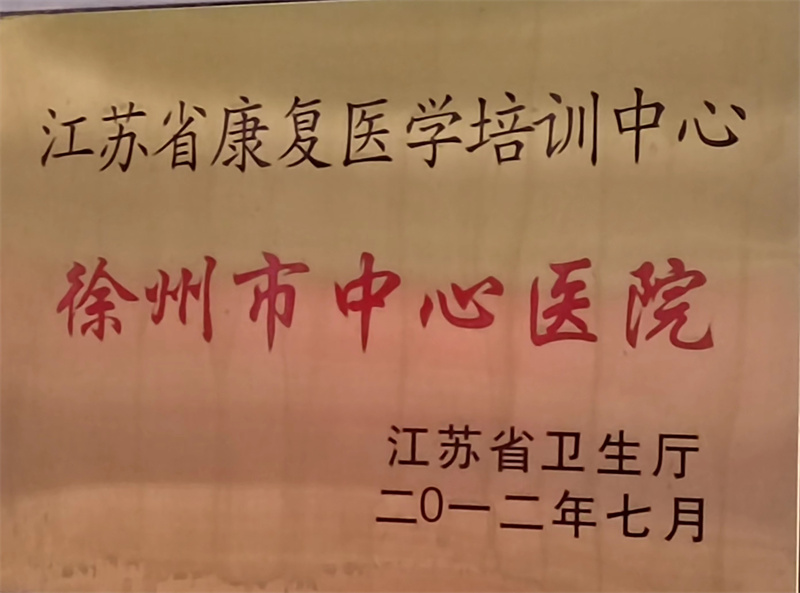 江苏省康复医学培训中心
徐州市中心医院
江苏省卫生厅
二0一二年七月